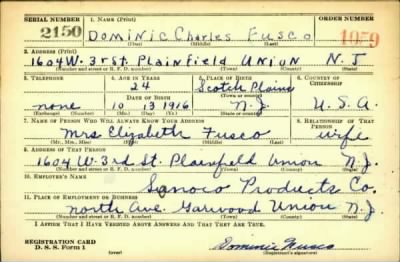 SERIAL NUMBER 1. NAME (Print) ORDER NUMBER
2150 Dominic Charles Fusco 1079
(First) (Middle) (Last)
2. ADDRESS (Print)
1604 W. 3rd St. Plainfield Union N. J
(Number and street or R. F. D. number) (Town) (County) (State)
3. TELEPHONE 4. AGE IN YEARS 5. PLACE OF BIRTH 6. COUNTRY OF CITIZENSHIP
24 Scotch Plains
DATE OF BIRTH (Town or county)
none 10 13 1916 N. J. U. S. A.
(Exchange) (No.) (Mo.) (Day) (Yr.) (State or country)
7. NAME OF PERSON WHO WILL ALWAYS KNOW YOUR ADDRESS 8. RELATIONSHIP OF THAT PERSON
Mrs Elizabeth Fusco wife
(Mr., Mrs., Miss) (First) (Middle) (Last)
9. ADDRESS OF THAT PERSON
1604 W. 3rd St. Plainfield Union N. J.
(Number and street or R. F. D. number) (Town) (County) (State)
10. EMPLOYER'S NAME
Sonoco Products Co.
11. PLACE OF EMPLOYMENT OR BUSINESS
North Ave. Garwood Union N. J.
(Number and street or R. F. D. number) (Town) (County) (State)
I AFFIRM THAT I HAVE VERIFIED ABOVE ANSWERS AND THAT THEY ARE TRUE.
REGISTRATION CARD
D. S. S. Form 1 Dominic Fusco
(over) (Registrant's signature)